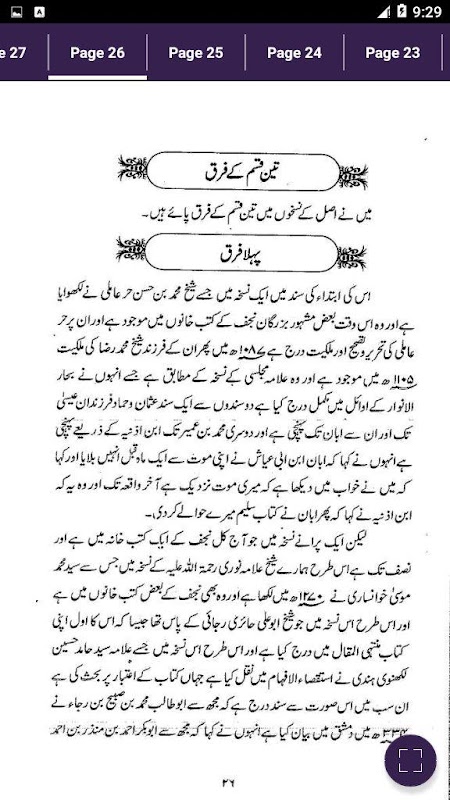 9:29
Page 27
Page 26
Page 25
Page 24
Page 23
تین قسم کے فرق
میں نے اصل کے نسخوں میں تین قسم کے فرق پائے ہیں۔
پہلا فرق
اس کی ابتداء کی سند میں ایک نسخہ میں جسے شیخ محمد بن حسن حر عاملی نے لکھوایا
ہے اور وہ اس وقت بعض مشہور بزرگان نجف کے کتب خانوں میں موجود ہے اور ان پر حر
عاملی کی تحریر و تصحیح اور ملکیت درج ہے ۱۰۸۷ھ میں پھر ان کے فرزند شیخ محمد رضا کی ملکیت
۱۱۰۵ھ میں موجود ہے اور وہ علامہ مجلسی کے نسخہ کے مطابق ہے جسے انہوں نے بحار
الانوار کے اوائل میں مکمل درج کیا ہے دو سندوں سے ایک سند عثمان و حماد فرزندان عیسیٰ
تک اور ان سے ابان تک پہنچتی ہے اور دوسری محمد بن عمیر تک ابن اذنیہ کے ذریعے پہنچتی
ہے انہوں نے کہا کہ ابان ابن ابی عیاش نے اپنی موت سے ایک ماہ قبل انہیں بلایا اور کہا
کہ میں نے خواب میں دیکھا ہے کہ میری موت نزدیک ہے آخر واقعہ تک اور وہ یہ کہ
ابن اذنیہ نے کہا کہ پھر ابان نے کتاب سلیم میرے حوالے کر دی۔
لیکن ایک پرانے نسخہ میں جو آج کل نجف کے ایک کتب خانہ میں ہے اور
نصف تک ہے اس طرح ہمارے شیخ علامہ نوری رحمۃ اللہ علیہ کے نسخہ میں جس سے سید محمد
موسیٰ خوانساری نے ۱۲۷۰ھ میں لکھا ہے اور وہ بھی نجف کے بعض کتب خانوں میں ہے
اور اس طرح اس نسخہ میں جو شیخ ابو علی حائری رجائی کے پاس تھا جیسا کہ اس کا اول اپنی
کتاب منتہی المقال میں درج کیا ہے اور اس طرح اس نسخہ میں جسے علامہ سید حامد حسین
لکھنوی ہندی نے استقصاء الافہام میں نقل کیا ہے جہاں کتاب کے اعتبار پر بحث کی ہے
ان سب میں اس صورت سے سند درج ہے کہ مجھ سے ابو طالب محمد بن صبیح بن رجاء نے
۳۳۴ھ میں دمشق میں بیان کیا ہے انہوں نے کہا کہ مجھ سے ابو بکر احمد بن منذر بن احمد
۲۶